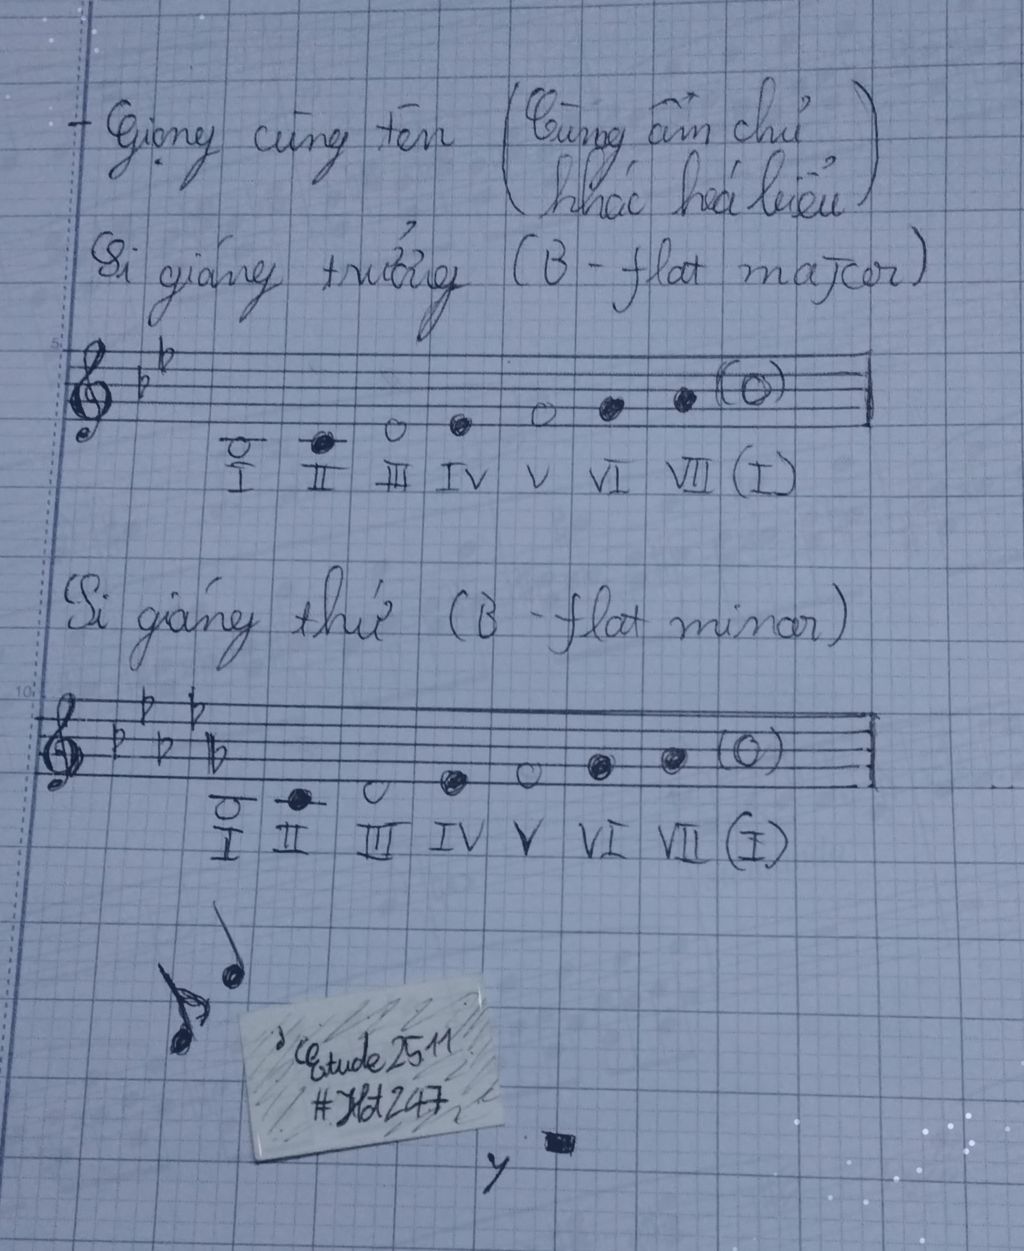 + Giọng cùng tên (Cùng âm chủ
khác hoá biểu)
Si giáng trưởng (B - flat major)
5
I II III IV V VI VII (I)
Si giáng thứ (B - flat minor)
10
I II III IV V VI VII (I)
Etude 2511
#Hot247